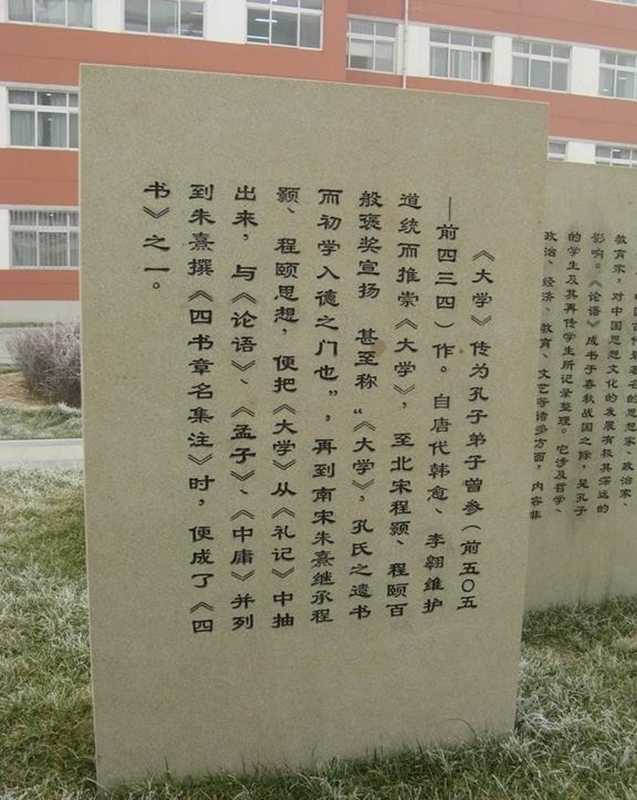 《大学》传为孔子弟子曾参（前五〇五
—前四三四）作。自唐代韩愈、李翱维护
道统而推崇《大学》，至北宋程颢、程颐百
般褒奖宣扬 甚至称“《大学》，孔氏之遗书
而初学入德之门也”，再到南宋朱熹继承程
颢、程颐思想，便把《大学》从《礼记》中抽
出来，与《论语》、《孟子》、《中庸》并列
到朱熹撰《四书章名集注》时，便成了《四
书》之一。
著名的思想家、政治家、
教育家，对中国思想文化的发展有极其深远的
影响。《论语》成书于春秋战国之际，是孔子
的学生及其再传学生所记录整理。它涉及哲学、
政治、经济、教育、文艺等诸多方面，内容非